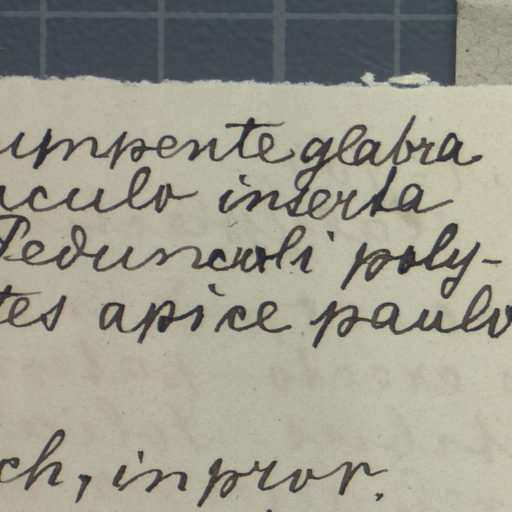 umpente glabra
culo inserta
Pedunculi poly-
tes apice paulo
ch, in prov.